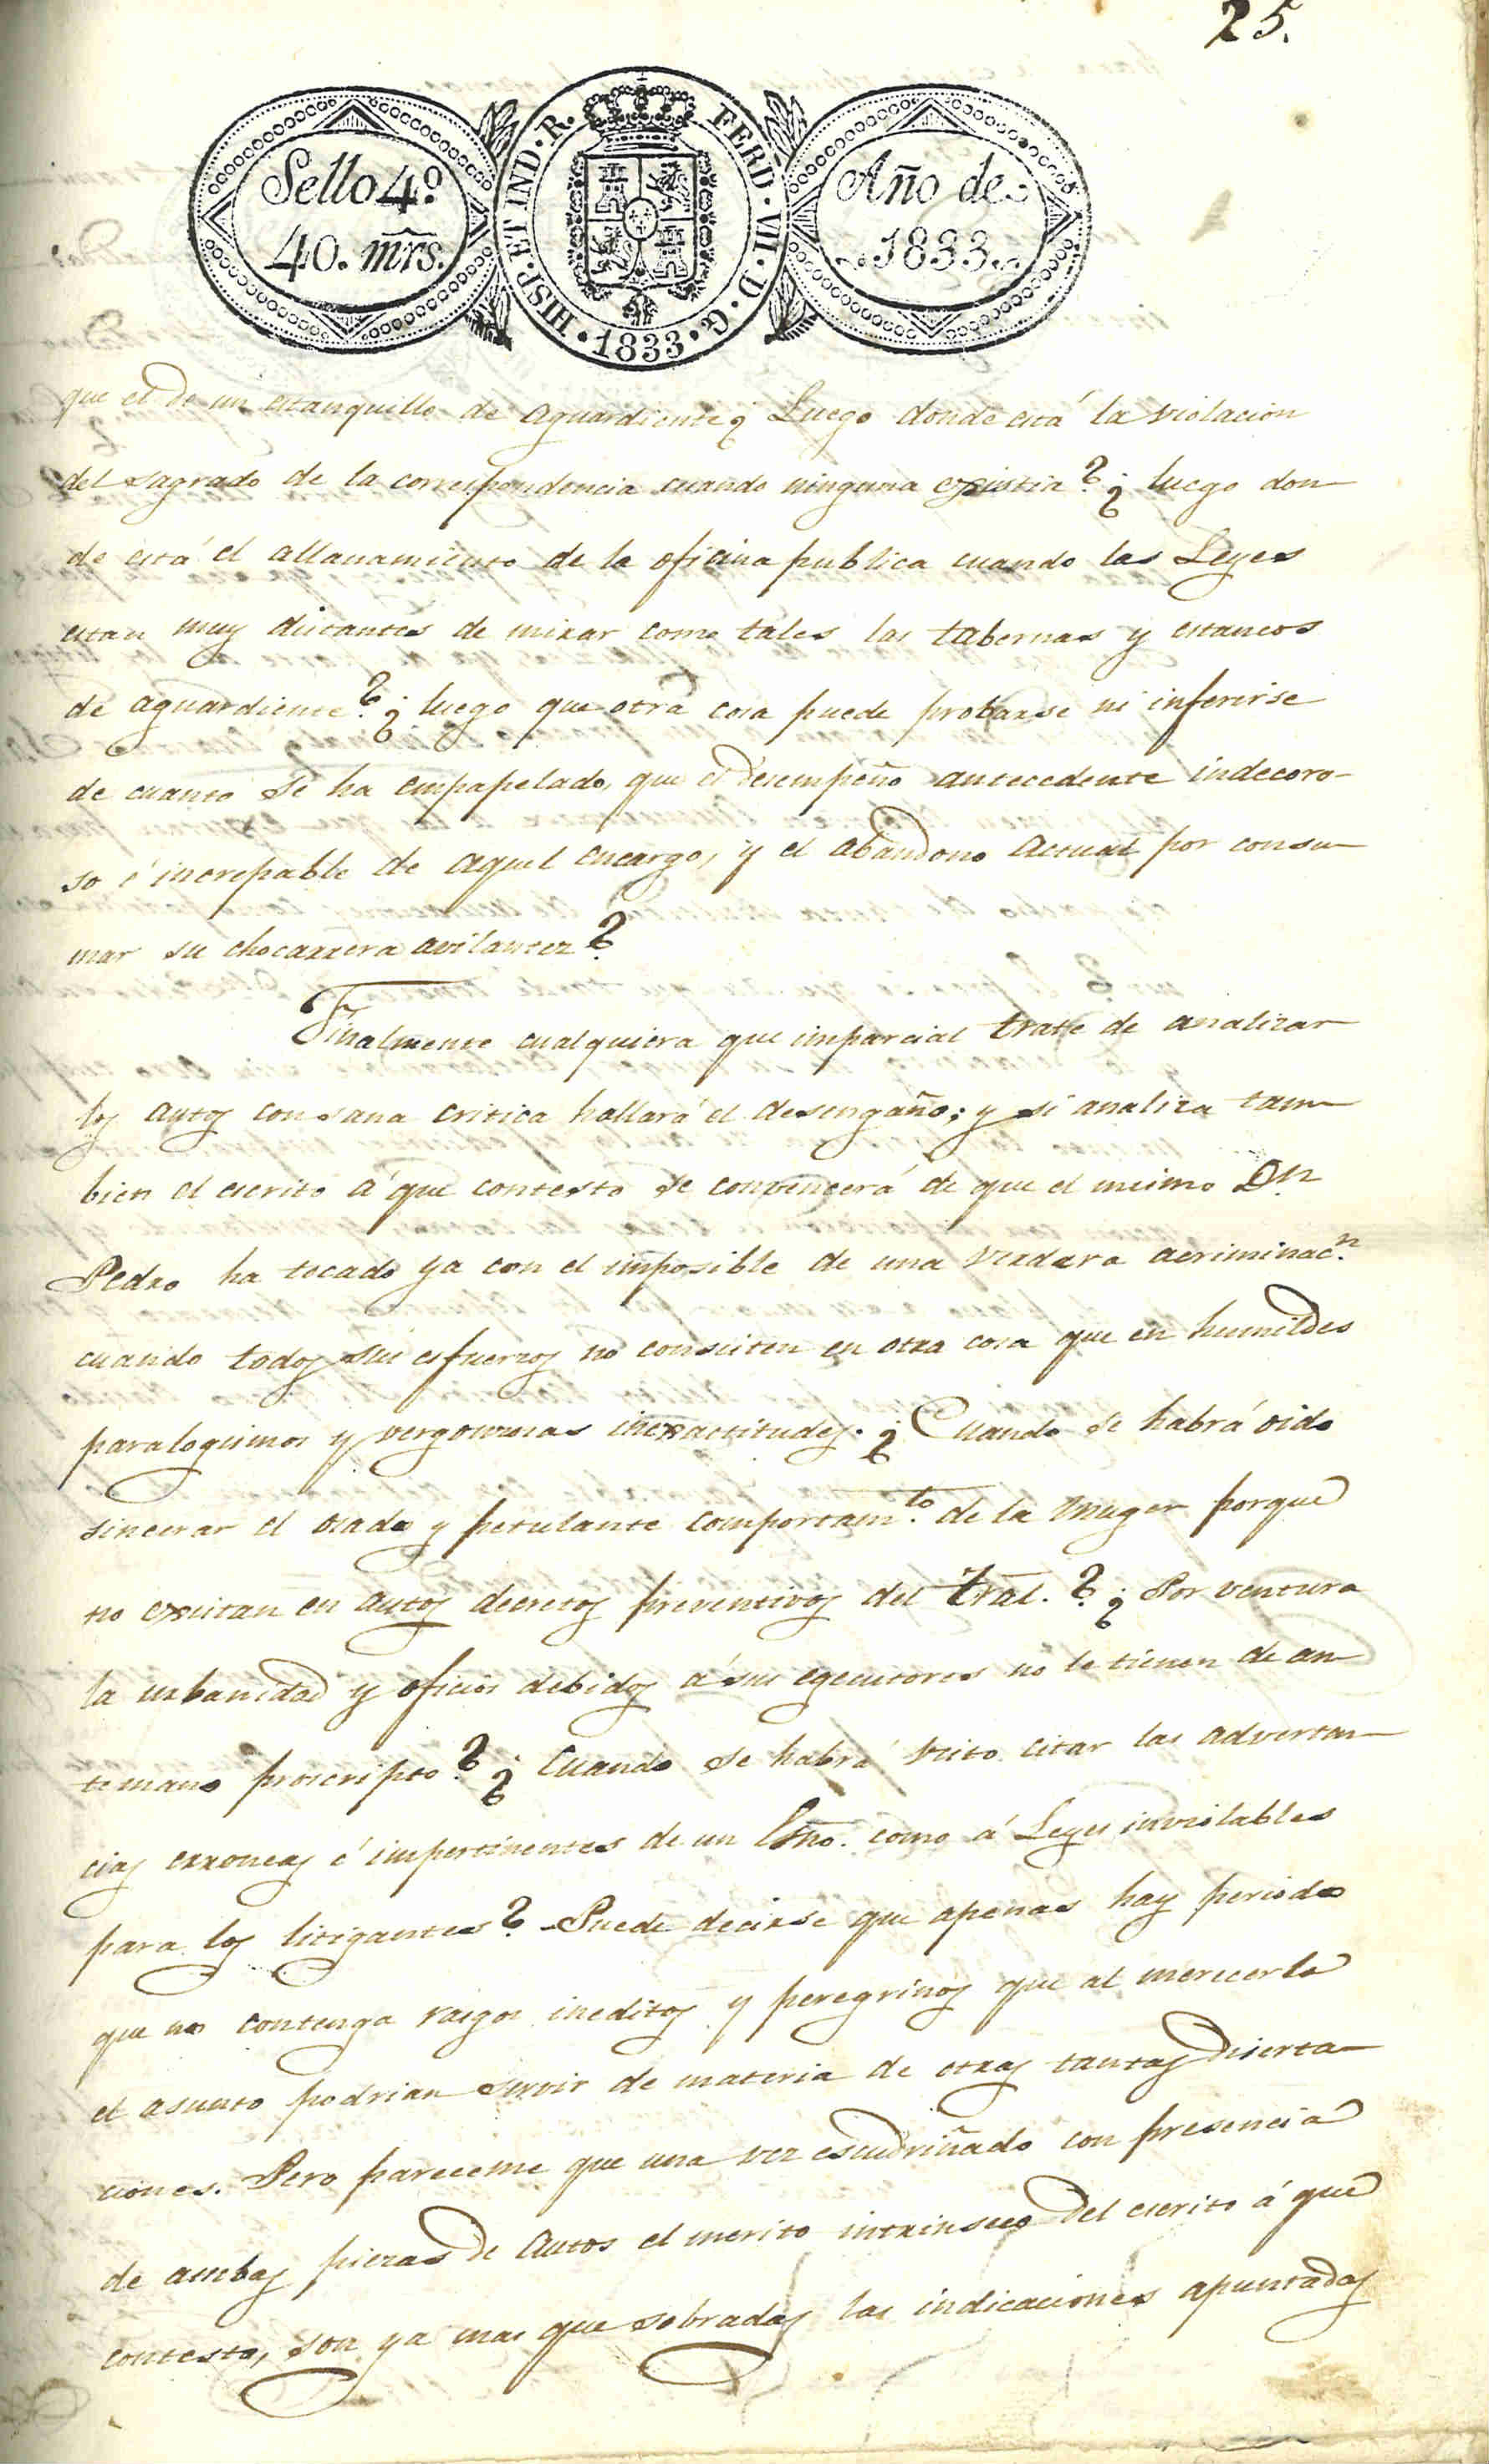 25.
Sello 4º
40. mrs.
HISP. ET IND. R. FERD. VII. D. G. 1833
Año de
1833
que el de un estanquillo de aguardiente¿ Luego donde está la violacion
del sagrado de la correspondencia cuando ninguna existia? ¿ luego don
de está el allanamiento de la oficina publica cuando las Leyes
estan muy distantes de mirar como tales las tabernas y estancos
de aguardiente? ¿ luego que otra cosa puede probarse ni inferirse
de cuanto se ha empapelado, que el desempeño antecedente indecoro-
so é increpable de aquel encargo, y el abandono actual por consu-
mar su chocarrera avilantez?
Finalmente cualquiera que imparcial trate de analizar
los autos con sana critica hallará el desengaño; y si analiza tam
bien el escrito á que contesto se convencerá de que el mismo Dn
Pedro ha tocado ya con el imposible de una verdara acriminacn.
cuando todos sus esfuerzos no consisten en otra cosa que en humildes
paralogismos y vergonzosas inexactitudes. ¿ Cuando se habrá oido
sincerar el osado y petulante comportamto. de la muger porque
no existan en autos decretos preventivos del tral.? ¿ Por ventura
la urbanidad y oficios debidos á sus egecutores no le tienen de an
temano proscripto? ¿ Cuando se habrá visto citar las advertan
cias erroneas é impertinentes de un Esno. como á Leyes inviolables
para los litigantes? Puede decirse que apenas hay periodo
que no contenga rasgos ineditos y peregrinos que al merecerlo
el asunto podrian servir de materia de otras tantas diserta-
ciones. Pero pareceme que una vez escudriñado con presencia
de ambas piezas de autos el merito intrinseco del escrito á que
contesto, son ya mas que sobradas las indicaciones apuntadas